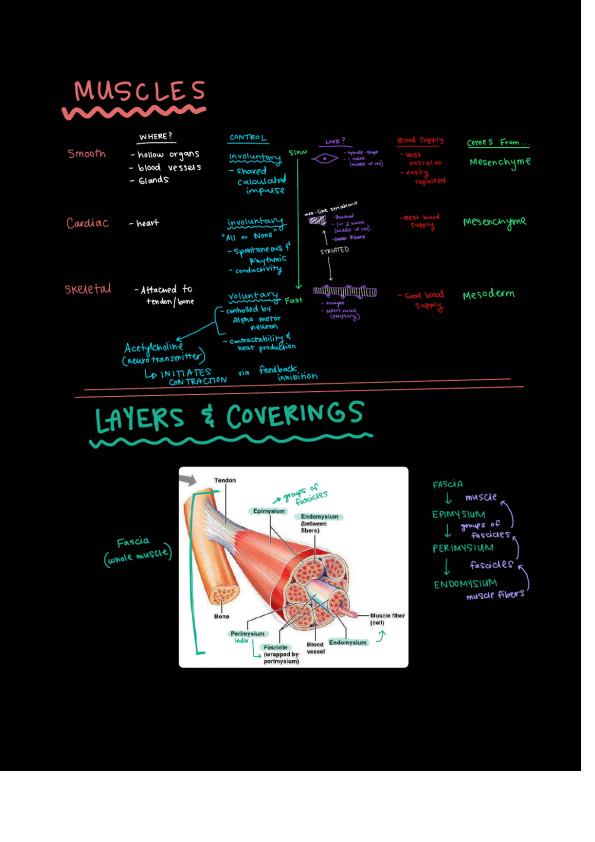 MUSCLES
WHERE?
CONTROL
Look?
Blood Supply
Comes From...
Smooth
- hollow organs
- blood vessels
- Glands
involuntary
- shared
calculated
impulse
Slow
- spindle-shape
- 1 nuclei
(middle of cell)
- least
vascular
- easily
repaired
Mesenchyme
Cardiac
- heart
involuntary
"All or None"
- spontaneous &
rhythmic
- conductivity
web-like striations
- Branched
- 1 or 2 nuclei
(middle of cell)
fibers
STRIATED
- Best blood
supply
Mesenchyme
Skeletal
- Attached to
tendon/bone
voluntary
- controlled by
Alpha motor
neuron
- contractability &
heat production
Fast
- straight
- MANY nuclei
(periphery)
- Good blood
supply
Mesoderm
Acetylcholine
(neurotransmitter)
↳ INITIATES
CONTRACTION
via feedback
inhibition
LAYERS & COVERINGS
Fascia
(whole muscle)
Tendon
Epimysium
→ groups of
fascicles
Endomysium
(between
fibers)
Bone
Perimysium
indiv.
Fascicle
(wrapped by
perimysium)
Blood
vessel
Endomysium
Muscle fiber
(cell)
FASCIA
↓ muscle
EPIMYSIUM
↓ groups of
fascicles
PERIMYSIUM
↓ fascicles
ENDOMYSIUM
muscle fibers